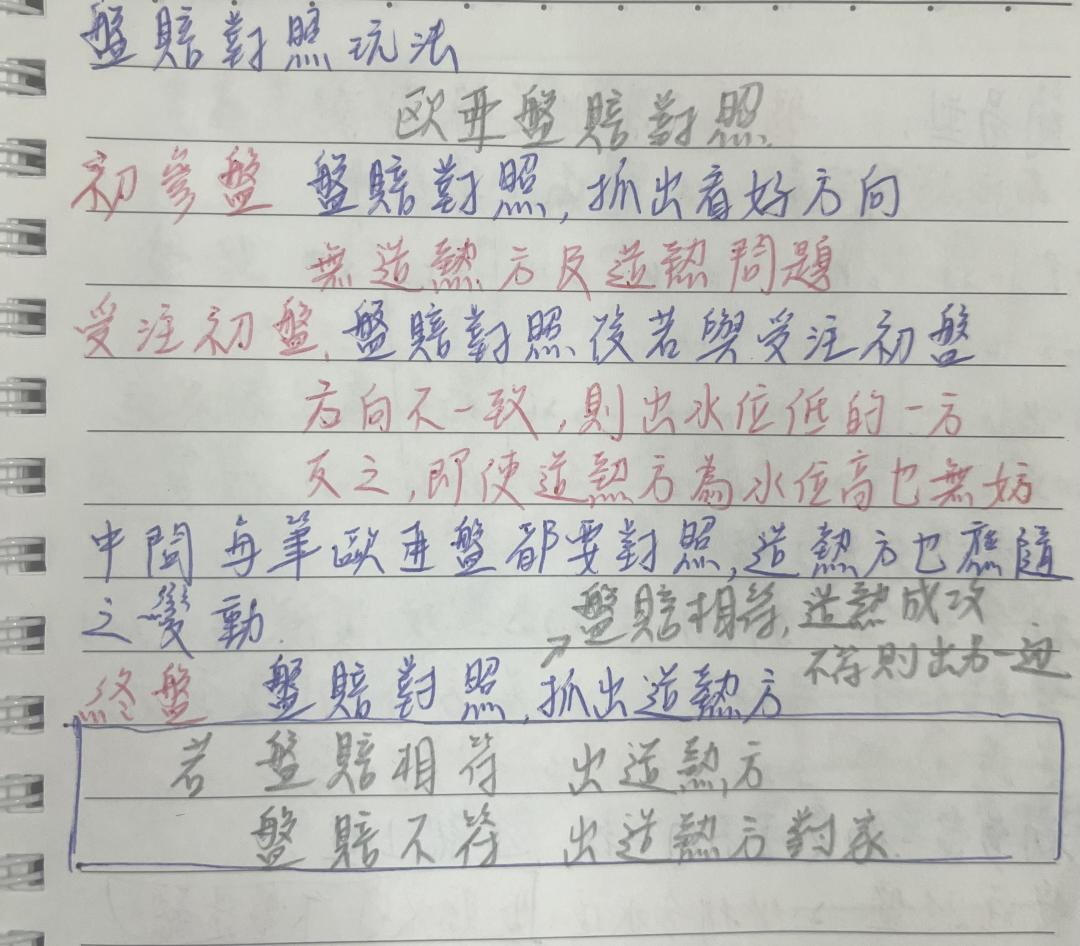 盤賠對照玩法
欧亜盤賠對照
初參盤 盤賠對照,抓出看好方向
無造熱方及造熱問題
受注初盤,盤賠對照後若與受注初盤
方向不一致,則出水位低的一方
反之,即使造熱方為水位高也無妨
中間每筆歐亜盤都要對照,造熱方也應隨
之變動.
↗盤賠相符,造熱成攻
不符則出另一边
終盤 盤賠對照,抓出造熱方
若盤賠相符 出造熱方
盤賠不符 出造熱方對家